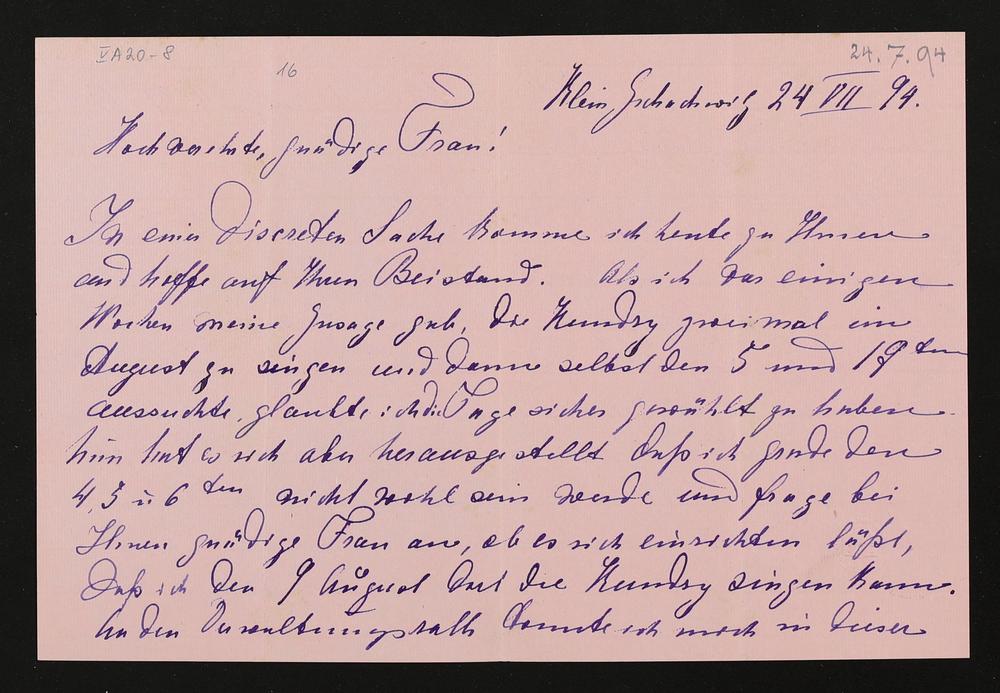 VA20-8
24.7.94
16
Klein Zschachwitz 24 VII 94.
Hochverehrte, gnädige Frau!
In einer discreten Sache komme ich heute zu Ihnen
und hoffe auf Ihren Beistand. Als ich vor einigen
Wochen meine Zusage gab, die Kundry zweimal im
August zu singen und dann selbst den 5 und 19ten
aussuchte, glaubte ich die Tage sicher gewählt zu haben
nun hat es sich aber herausgestellt daß ich grade den
4, 5 u 6ten nicht wohl sein werde und frage bei
Ihnen gnädige Frau an, ob es sich einrichten läßt,
daß ich den 9 August dort die Kundry singen kann.
An den Verwaltungsrath konnte ich mich in dieser